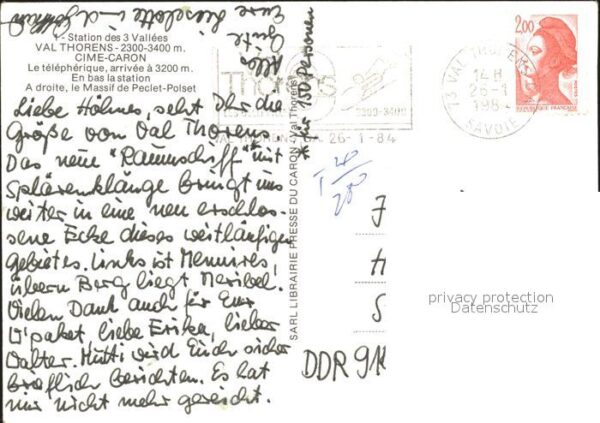 1 - Station des 3 Vallées
VAL THORENS - 2300-3400 m.
CIME-CARON
Le téléphérique, arrivée à 3200 m.
En bas la station
A droite, le Massif de Peclet-Polset
Liebe Höhnes, seht Ihr die
Größe von Val Thorens
Das neue "Raumschiff"* mit
Sphärenklänge bringt uns
weiter in eine neu erschlos-
sene Ecke dieses weitläufigen
Gebietes. Links ist Menuires,
übern Berg liegt Meribel.
Vielen Dank auch für Eur
Ü'paket, liebe Erika, lieber
Walter. Mutti wird Euch sicher
brieflich berichten. Es hat
nur nicht mehr gereicht.
Alles
Gute
Eure
Lieselotte
* für 150 Personen
SARL LIBRAIRIE PRESSE DU CARON - Val Thorens
Thorens
2300-3400
VAL THORENS 26-1-84
73 VAL THORENS
14H
26-1
198
SAVOIE
2,00
REPUBLIQUE FRANÇAISE
J
H
S
DDR 911
privacy protection
Datenschutz